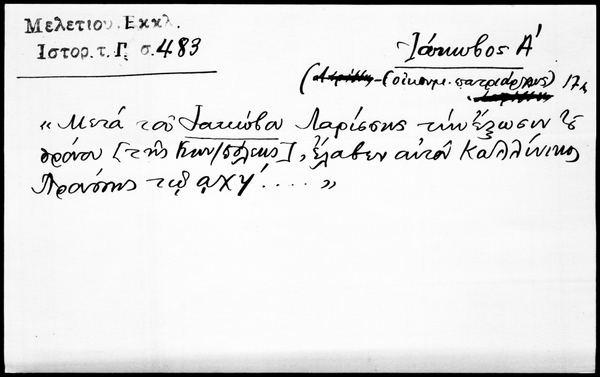 Μελετίου. Εκκλ.
Ιστορ. τ. Γ σ. 483
Ἰάκωβος Α΄
( – (οἰκουμ. πατριάρχης) 17
„ Μετά τοῦ Ἰακώβου Λαρίσσης τὴν ἔξωσιν
θρόνου [τῆς Κων/πόλεως], ἔλαβεν αὐτὸν Καλλίνικος
Προύσης τῷ αχ ..... „